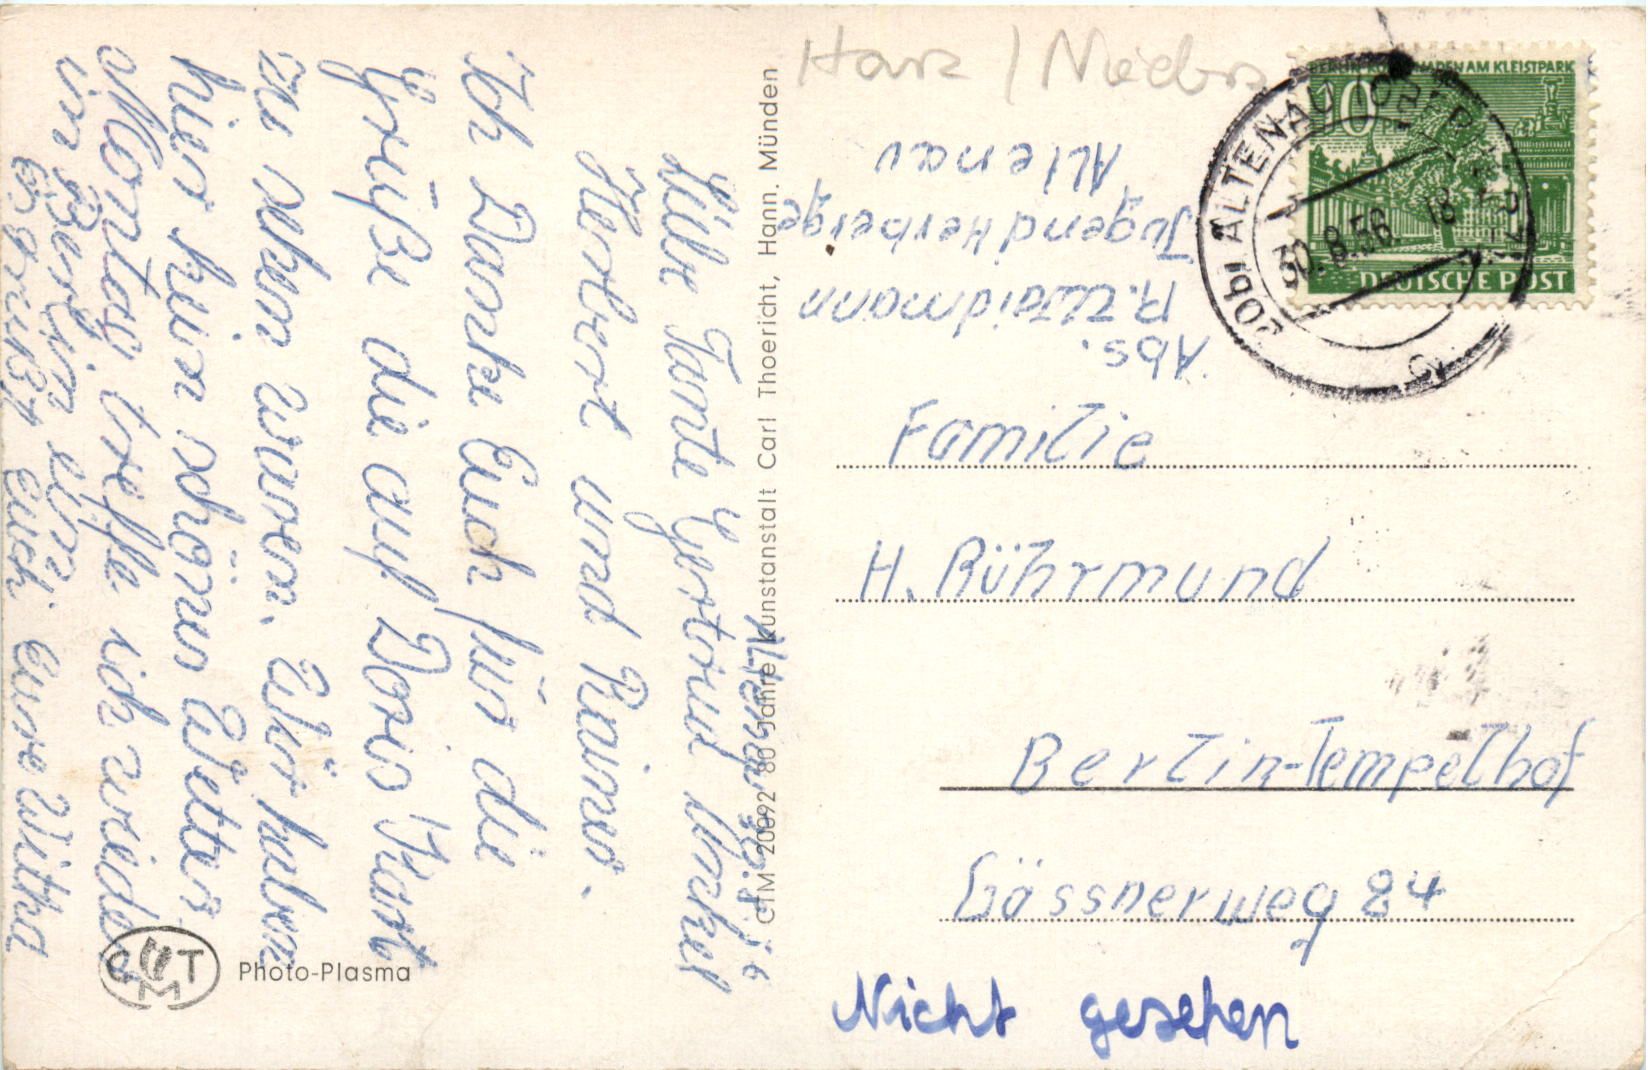 Altenau
Liebe Tante Gertrud Onkel
Herbert und Rainer.
Ich Danke Euch für die
Grüße die auf Doris Kart
zu sehen waren. Wir haben
hier kein schönes Wetter
Montag treffe ich wieder
in Berlin ein
Es grüßt Euch Eure
CTM 20092 80 Jahre Kunstanstalt Carl Thoericht, Hann. Münden
C M T
Photo-Plasma
Harz /
Abs.
R. Waidmann
Jugendherberge
Altenau
BERLIN KOLONNADEN AM KLEISTPARK
10
DEUTSCHE POST
ALTENAU (OBERHARZ)
30.8.56. 18
Familie
H. Rührmund
Berlin-Tempelhof
Gässnerweg 84
Nicht gesehen